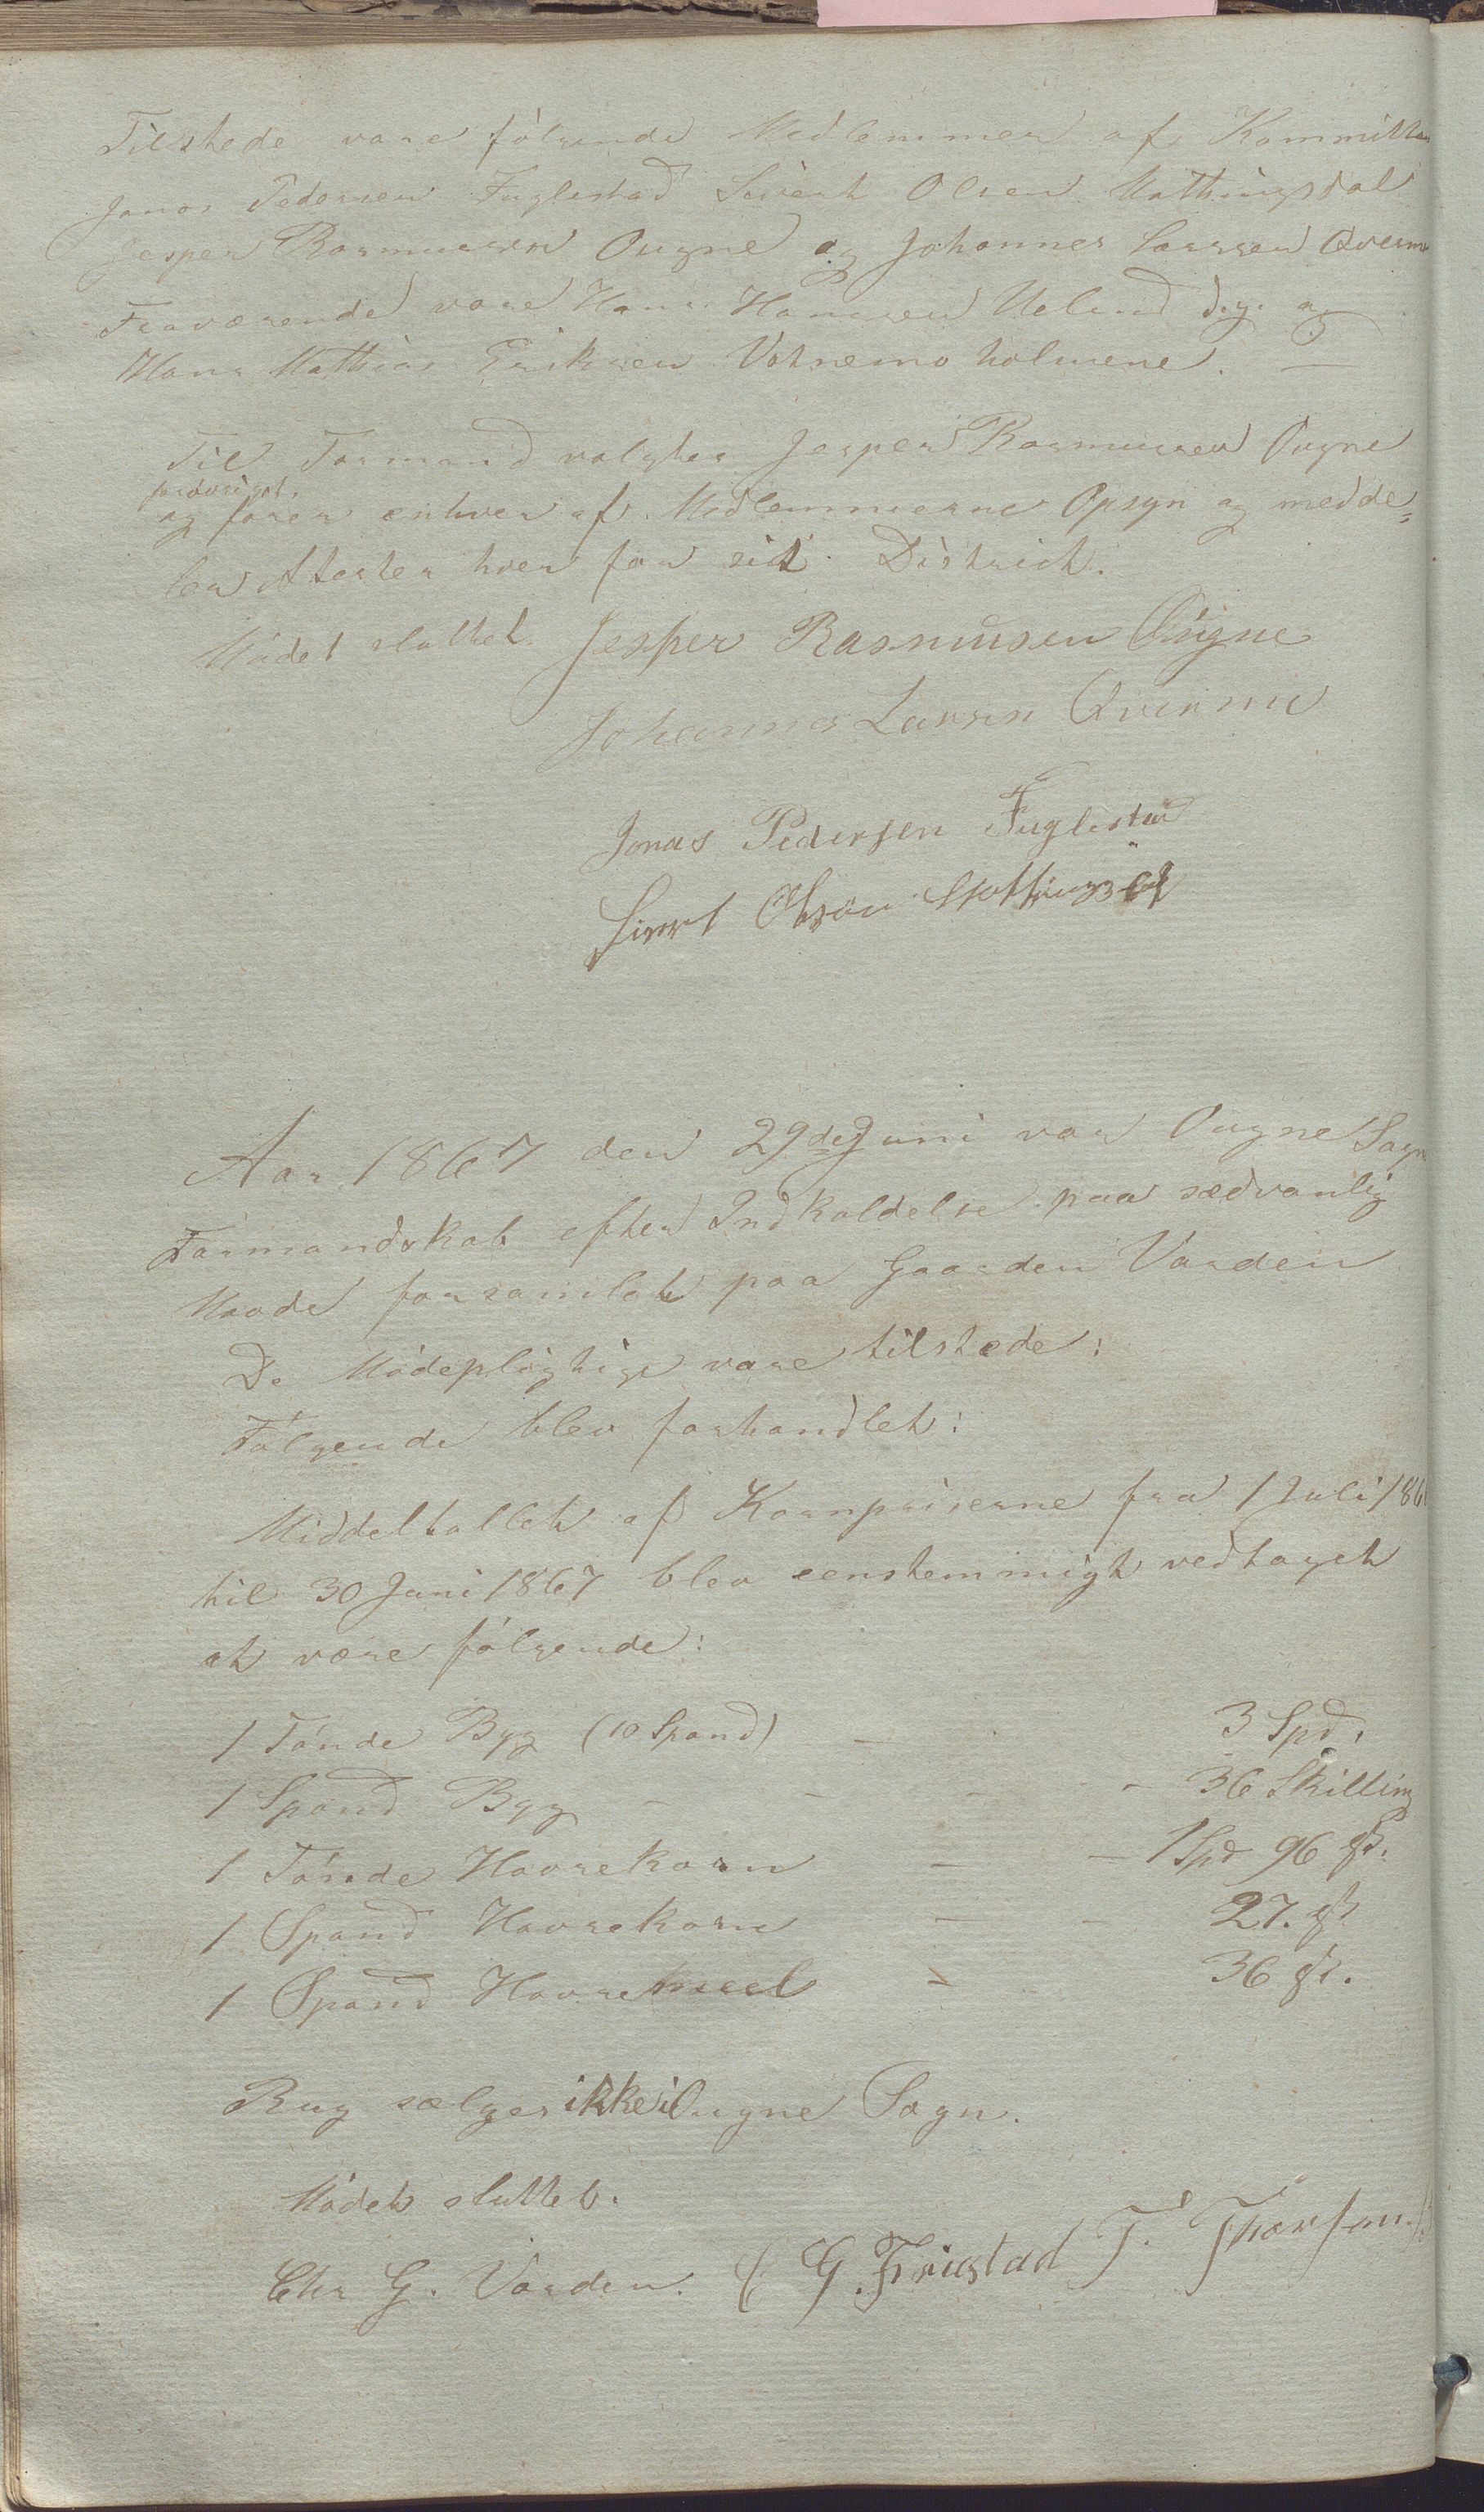 Tilstede vare fölgende Medlemmer af Kommitteen
Jonas Pedersen Fuglestad Sivert Olsen Mathingsdal
Jesper Rasmussen Ougne og Johannes Larssen Qverme
Fraværende vare Hans Hansen Ueland d.y. og
Hans Mathias Eriksen Vatnemo holmene. —
Til Formand valgtes Jesper Rasmussen Ougne
forövrigt
og förer enhver af Medlemmerne Opsyn og medde=
ler Attester hver for sit District.
Mödet sluttet. Jesper Rasmusen Ougne
Johannes Larsen Qverme
Jonas Pedersen Fuglestad
Sivert Olsen Mattingsdal
Aar 1867 den 29de Juni var Ougne Sogns
Formandskab efter Indkaldelse paa sædvanlig
Maade forsamlet paa Gaarden Varden
De Mödepligtige vare tilstede:
Fölgende blev forhandlet:
Middeltallet af Kornpriserne fra 1 Juli 186
til 30 Juni 1867 blev eenstemmigt vedtaget
at være fölgende:
1 Tönde Byg (10 Spand) — 3 Spd.
1 Spand Byg - - - - 36 Skilling
1 Tönde Havrekorn — — 1 Spd 96 sk.
1 Spand Havrekorn — - 27. sk
1 Spand Havremeel - 36 sk.
Rug sælges ikke i Ougne Sogn.
Mödet sluttet.
Chr G. Varden. G. Friestad T. Thorsen